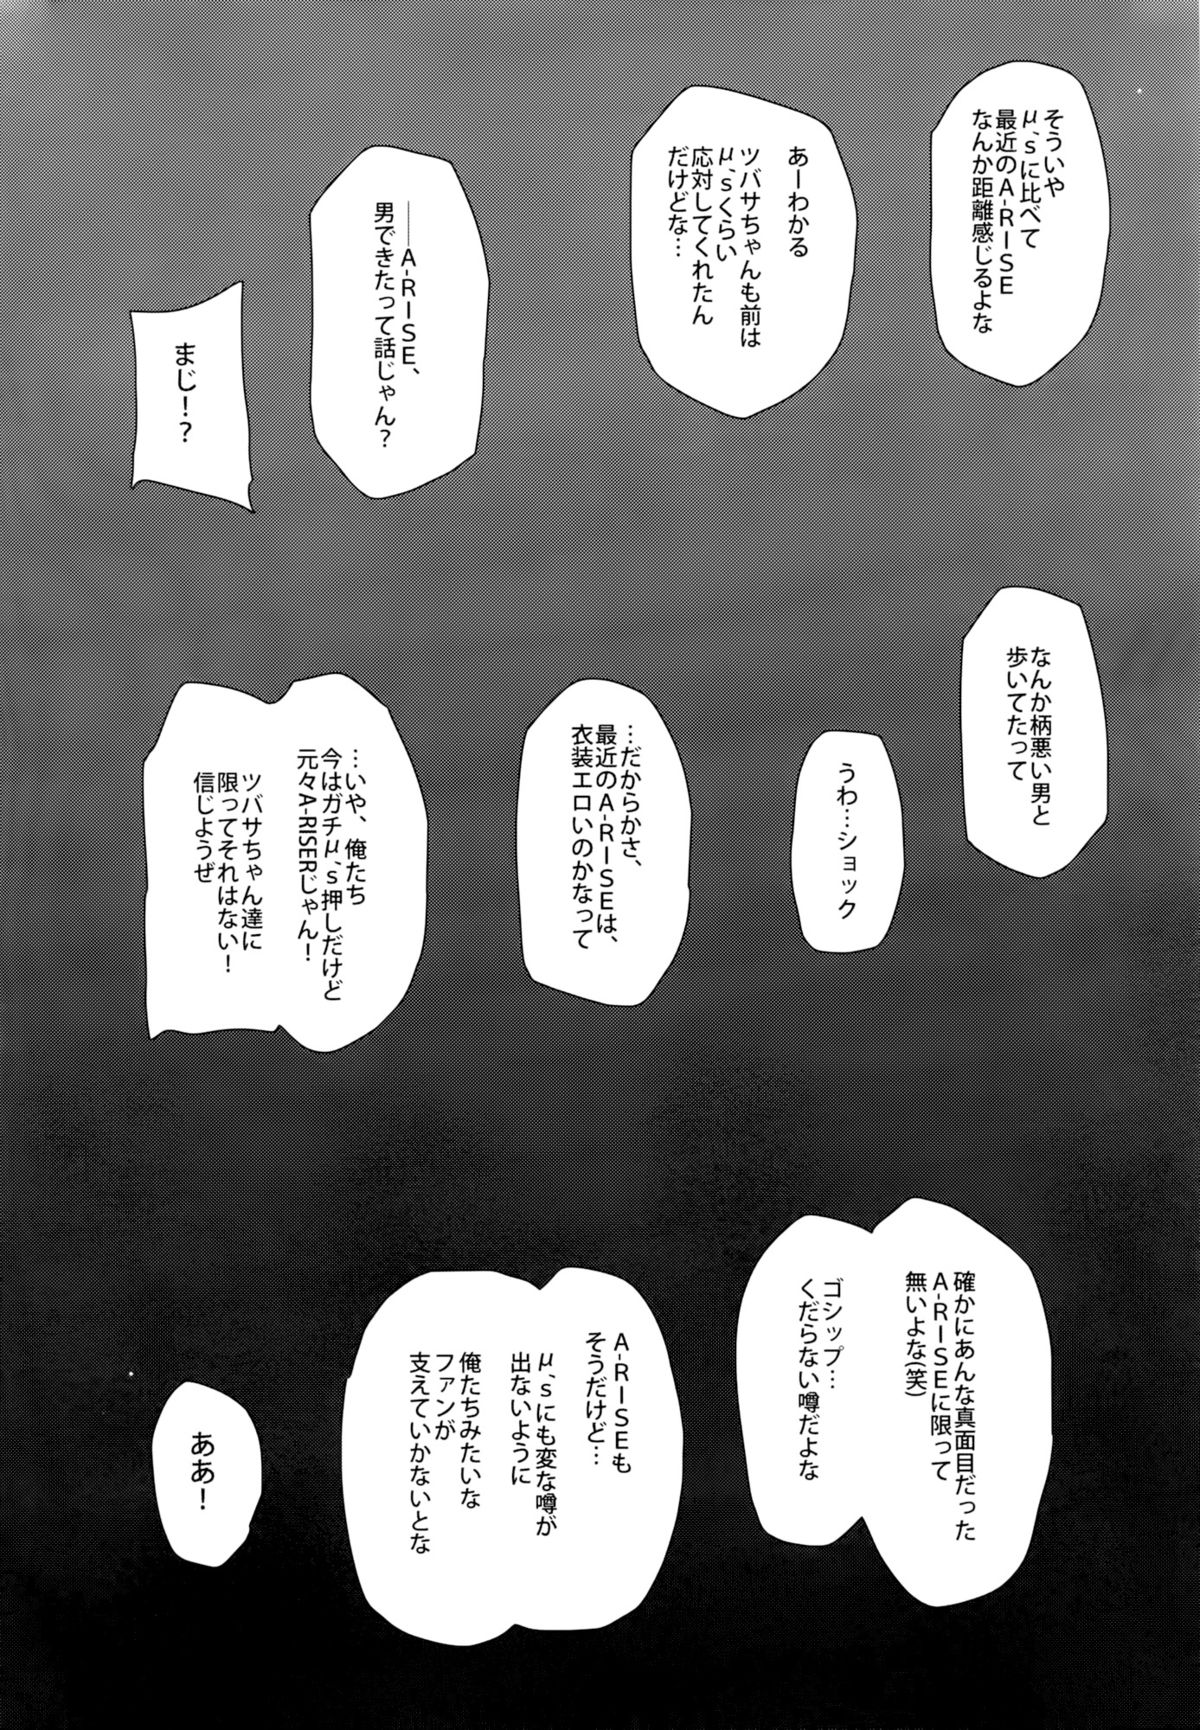 そういや
μ'sに比べて
最近のA-RISE
なんか距離感じるよな
あーわかる
ツバサちゃんも前は
μ'sくらい
応対してくれたん
だけどな…
――A-RISE、
男できたって話じゃん？
まじ！？
なんか柄悪い男と
歩いてたって
うわ…ショック
…だからかさ、
最近のA-RISEは、
衣装エロいのかなって
…いや、俺たち
今はガチμ's押しだけど
元々A-RISERじゃん！
ツバサちゃん達に
限ってそれはない！
信じようぜ
確かにあんな真面目だった
A-RISEに限って
無いよな(笑)
ゴシップ…
くだらない噂だよな
A-RISEも
そうだけど…
μ'sにも変な噂が
出ないように
俺たちみたいな
ファンが
支えていかないとな
ああ！